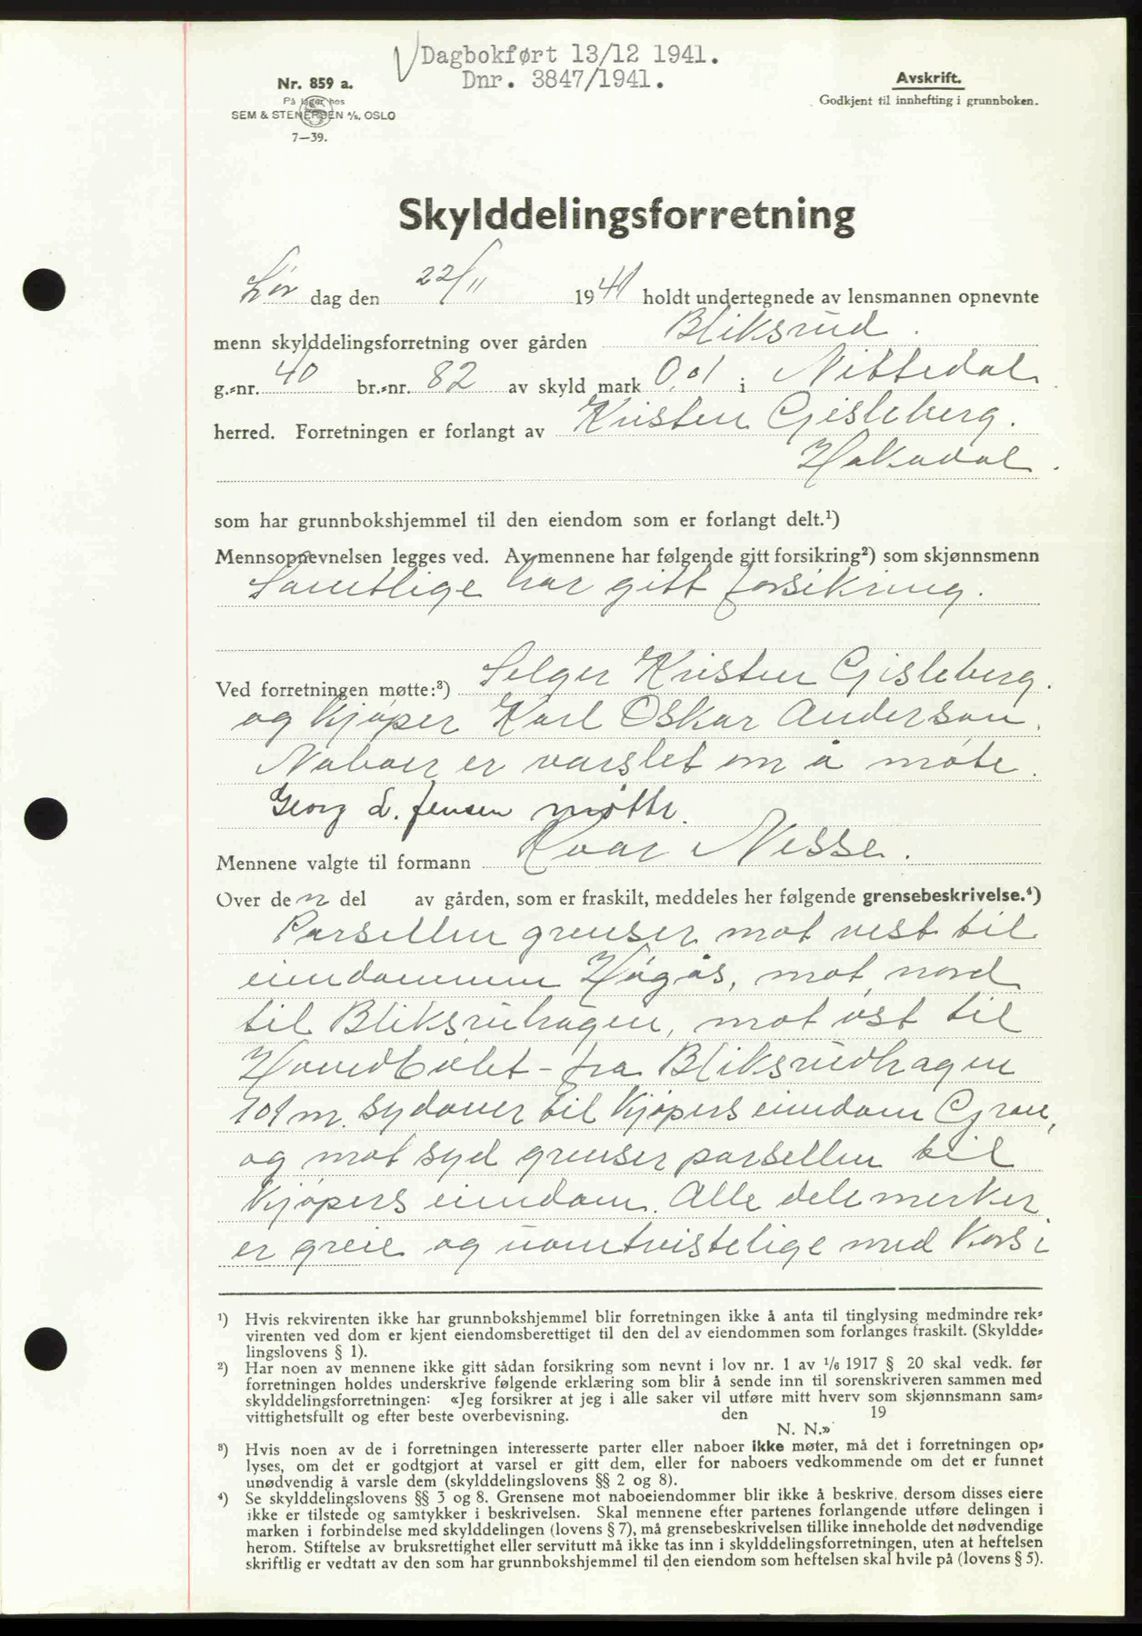 Dagbokført 13/12 1941.
Dnr. 3847/1941.
Nr. 859 a.
På lager hos
SEM & STENERSEN A/S, OSLO
7—39.
Avskrift.
Godkjent til innhefting i grunnboken.
Skylddelingsforretning
Lør dag den 22/11 1941 holdt undertegnede av lensmannen opnevnte
menn skylddelingsforretning over gården Bliksrud.
g.-nr. 40 br.-nr. 82 av skyld mark 0,01 i Nittedal
herred. Forretningen er forlangt av Kristen Gisleberg.
Hakadal.
som har grunnbokshjemmel til den eiendom som er forlangt delt.¹)
Mennsopnevnelsen legges ved. Av mennene har følgende gitt forsikring²) som skjønnsmenn
Samtlige har gitt forsikring.
Ved forretningen møtte:³) Selger Kristen Gisleberg.
og Kjøper Karl Oskar Anderson.
Naboer er varslet om å møte.
Georg L. Jensen møtte.
Mennene valgte til formann Roar Nesse.
Over de n del av gården, som er fraskilt, meddeles her følgende grensebeskrivelse.⁴)
Parsellen grenser mot vest til
eiendommen Høgås, mot nord
til Bliksruhagen, mot øst til
Hovedbølet - fra Bliksrudhagen
101 m. sydover til Kjøpers eiendom Gran,
og mot syd grenser parsellen til
Kjøpers eiendom. Alle delemerker
er greie og uomtvistelige med Kors i
¹) Hvis rekvirenten ikke har grunnbokshjemmel blir forretningen ikke å anta til tinglysing medmindre rek-
virenten ved dom er kjent eiendomsberettiget til den del av eiendommen som forlanges fraskilt. (Skyldde-
lingslovens § 1).
²) Har noen av mennene ikke gitt sådan forsikring som nevnt i lov nr. 1 av 1/6 1917 § 20 skal vedk. før
forretningen holdes underskrive følgende erklæring som blir å sende inn til sorenskriveren sammen med
skylddelingsforretningen: «Jeg forsikrer at jeg i alle saker vil utføre mitt hverv som skjønnsmann sam-
vittighetsfullt og efter beste overbevisning. den 19
N. N.»
³) Hvis noen av de i forretningen interesserte parter eller naboer ikke møter, må det i forretningen op-
lyses, om det er godtgjort at varsel er gitt dem, eller for naboers vedkommende om det er funnet
unødvendig å varsle dem (skylddelingslovens §§ 2 og 8).
⁴) Se skylddelingslovens §§ 3 og 8. Grensene mot naboeiendommer blir ikke å beskrive, dersom disses eiere
ikke er tilstede og samtykker i beskrivelsen. Skal mennene efter partenes forlangende utføre delingen i
marken i forbindelse med skylddelingen (lovens § 7), må grensebeskrivelsen tillike inneholde det nødvendige
herom. Stiftelse av bruksrettighet eller servitutt må ikke tas inn i skylddelingsforretningen, uten at heftelsen
skriftlig er vedtatt av den som har grunnbokshjemmel til den eiendom som heftelsen skal hvile på (lovens § 5).